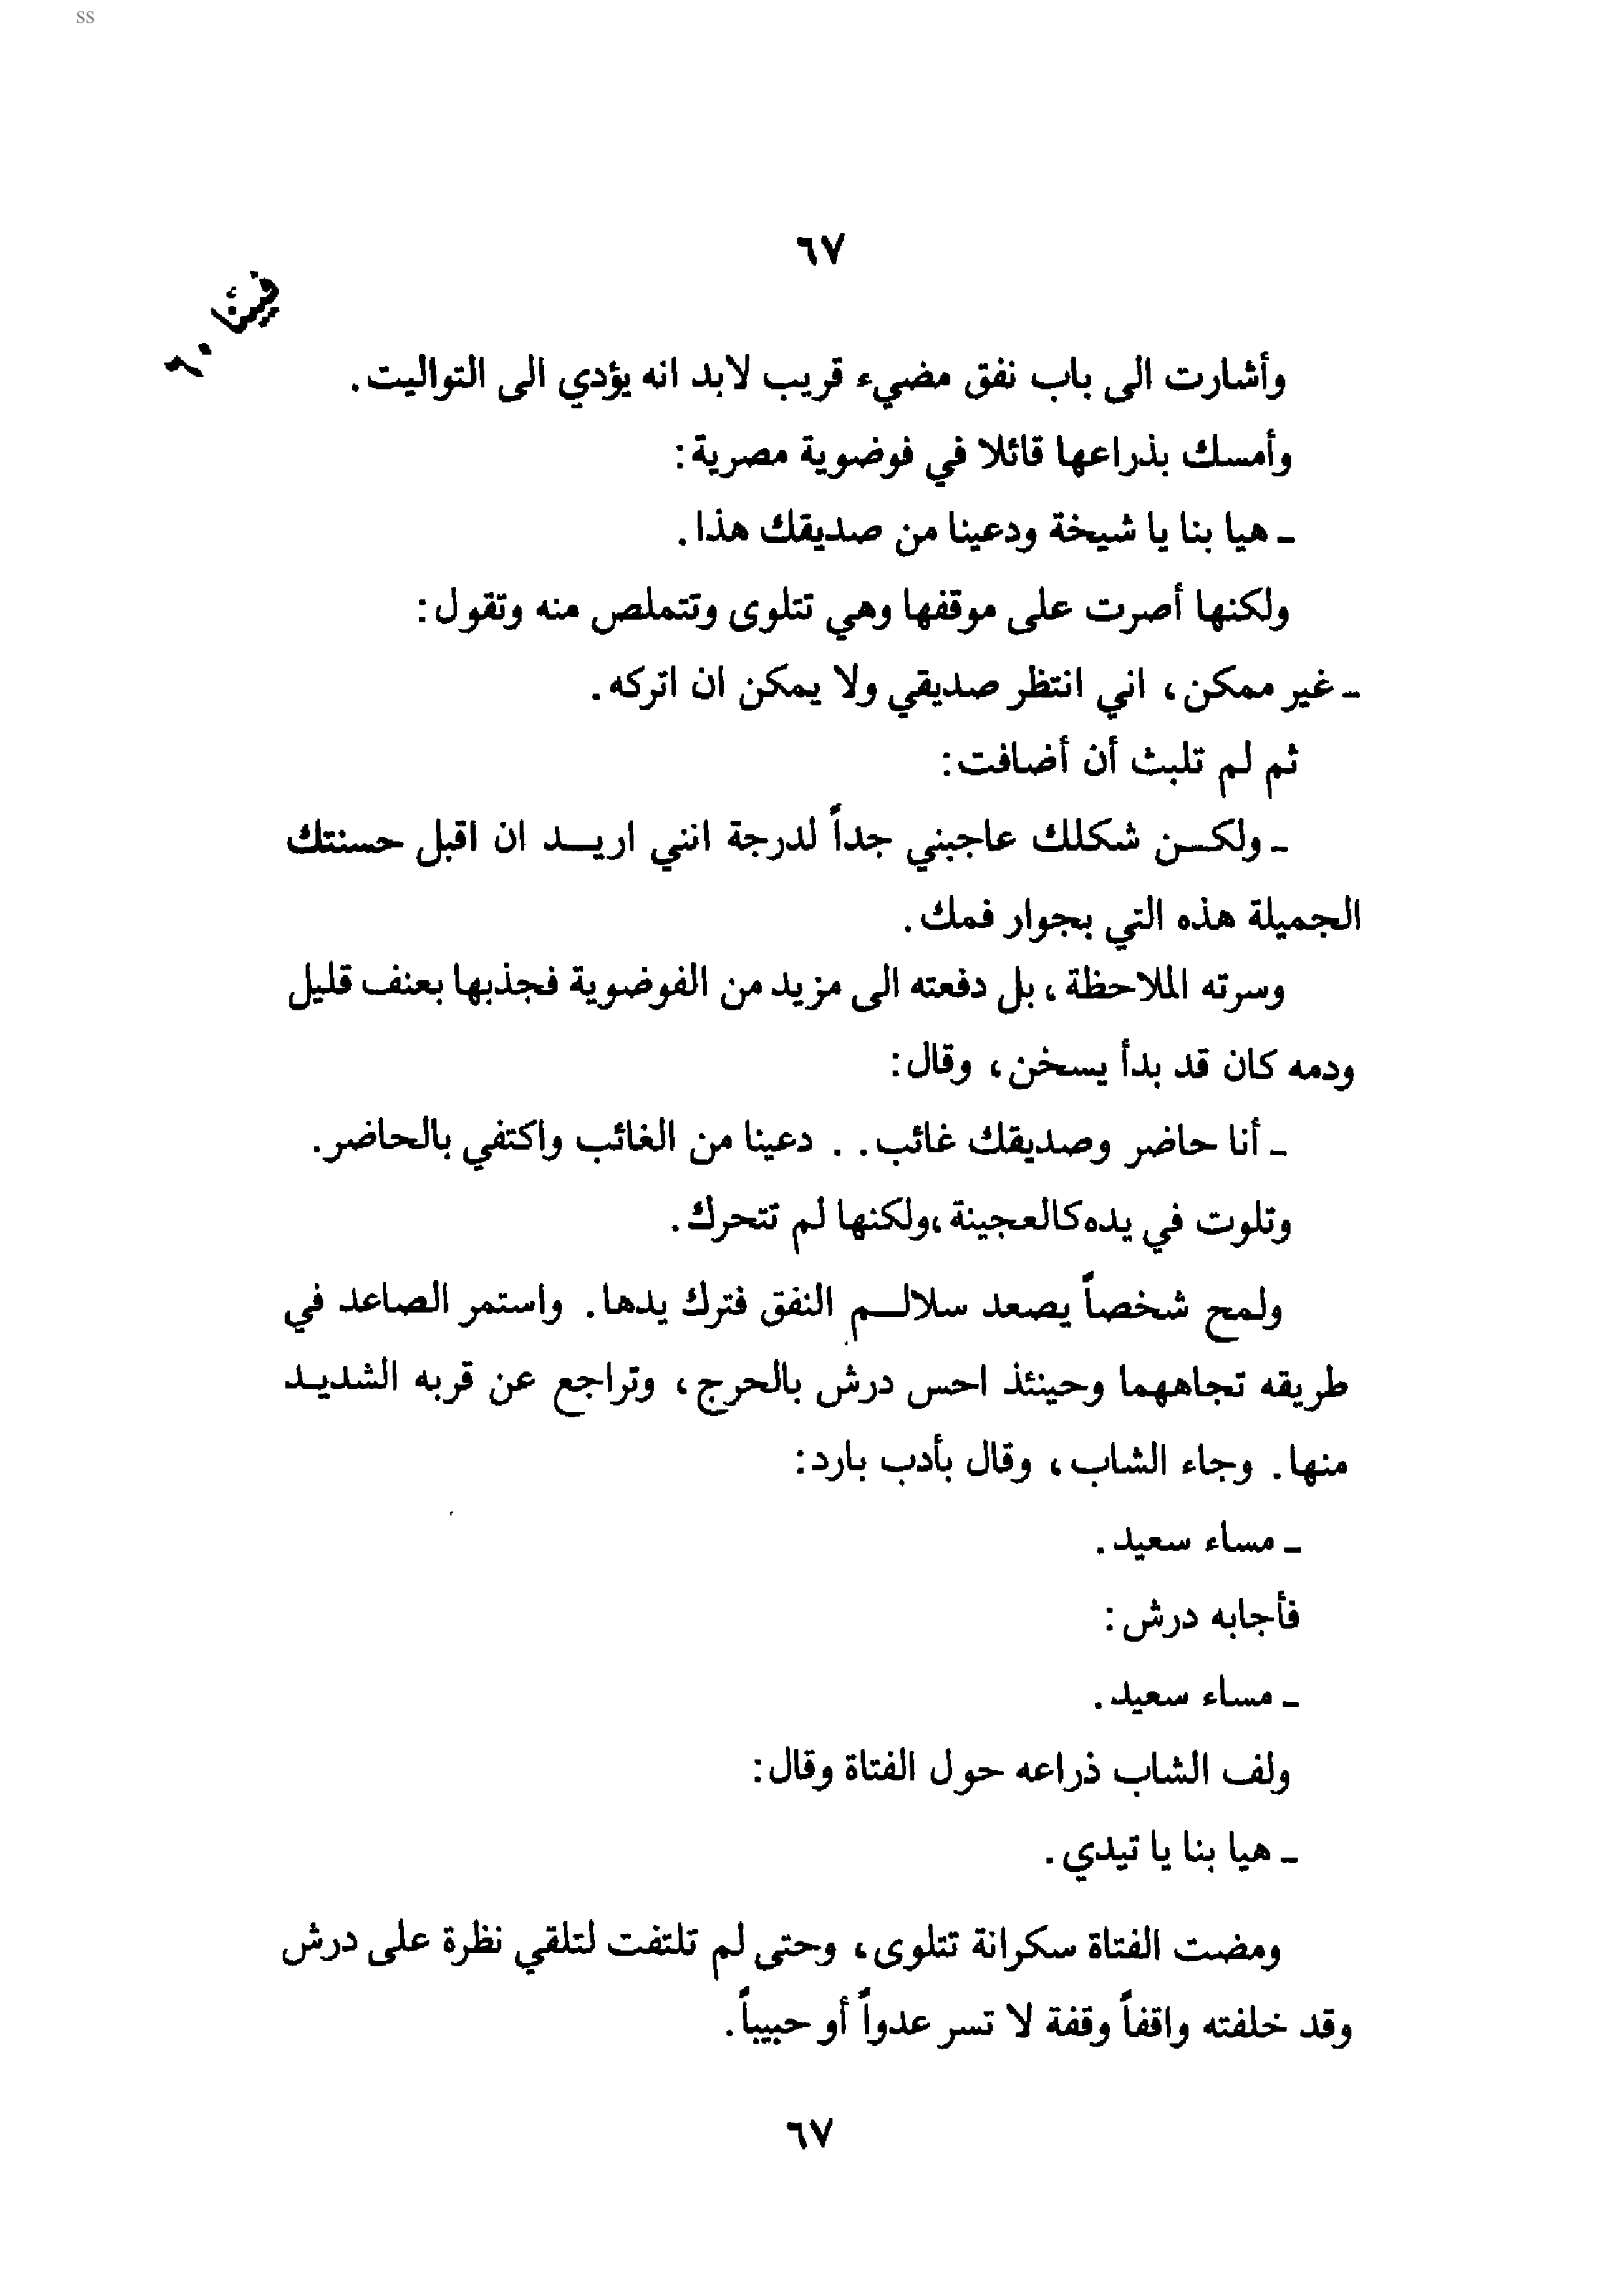 ss
٦٧
ڤيينا ٦٠
وأشارت الى باب نفق مضيء قريب لابد انه يؤدي الى التواليت.
وأمسك بذراعها قائلا في فوضوية مصرية:
ـ هيا بنا يا شيخة ودعينا من صديقك هذا.
ولكنها أصرت على موقفها وهي تتلوى وتتملص منه وتقول:
ـ غير ممكن، اني انتظر صديقي ولا يمكن ان اتركه.
ثم لم تلبث أن أضافت:
ـ ولكـن شكلك عاجبني جداً لدرجة انني اريـد ان اقبل حسنتك
الجميلة هذه التي بجوار فمك.
وسرته الملاحظة، بل دفعته الى مزيد من الفوضوية فجذبها بعنف قليل
ودمه كان قد بدأ يسخن، وقال:
ـ أنا حاضر وصديقك غائب. . دعينا من الغائب واكتفي بالحاضر.
وتلوت في يده كالعجينة،ولكنها لم تتحرك.
ولمح شخصاً يصعد سلالـم النفق فترك يدها. واستمر الصاعد في
طريقه تجاههما وحينئذ احس درش بالحرج، وتراجع عن قربه الشديـد
منها. وجاء الشاب، وقال بأدب بارد:
ـ مساء سعيد.
فأجابه درش:
ـ مساء سعيد.
ولف الشاب ذراعه حول الفتاة وقال:
ـ هيا بنا يا تيدي.
ومضت الفتاة سكرانة تتلوى، وحتى لم تلتفت لتلقي نظرة على درش
وقد خلفته واقفاً وقفة لا تسر عدواً أو حبيباً.
٦٧